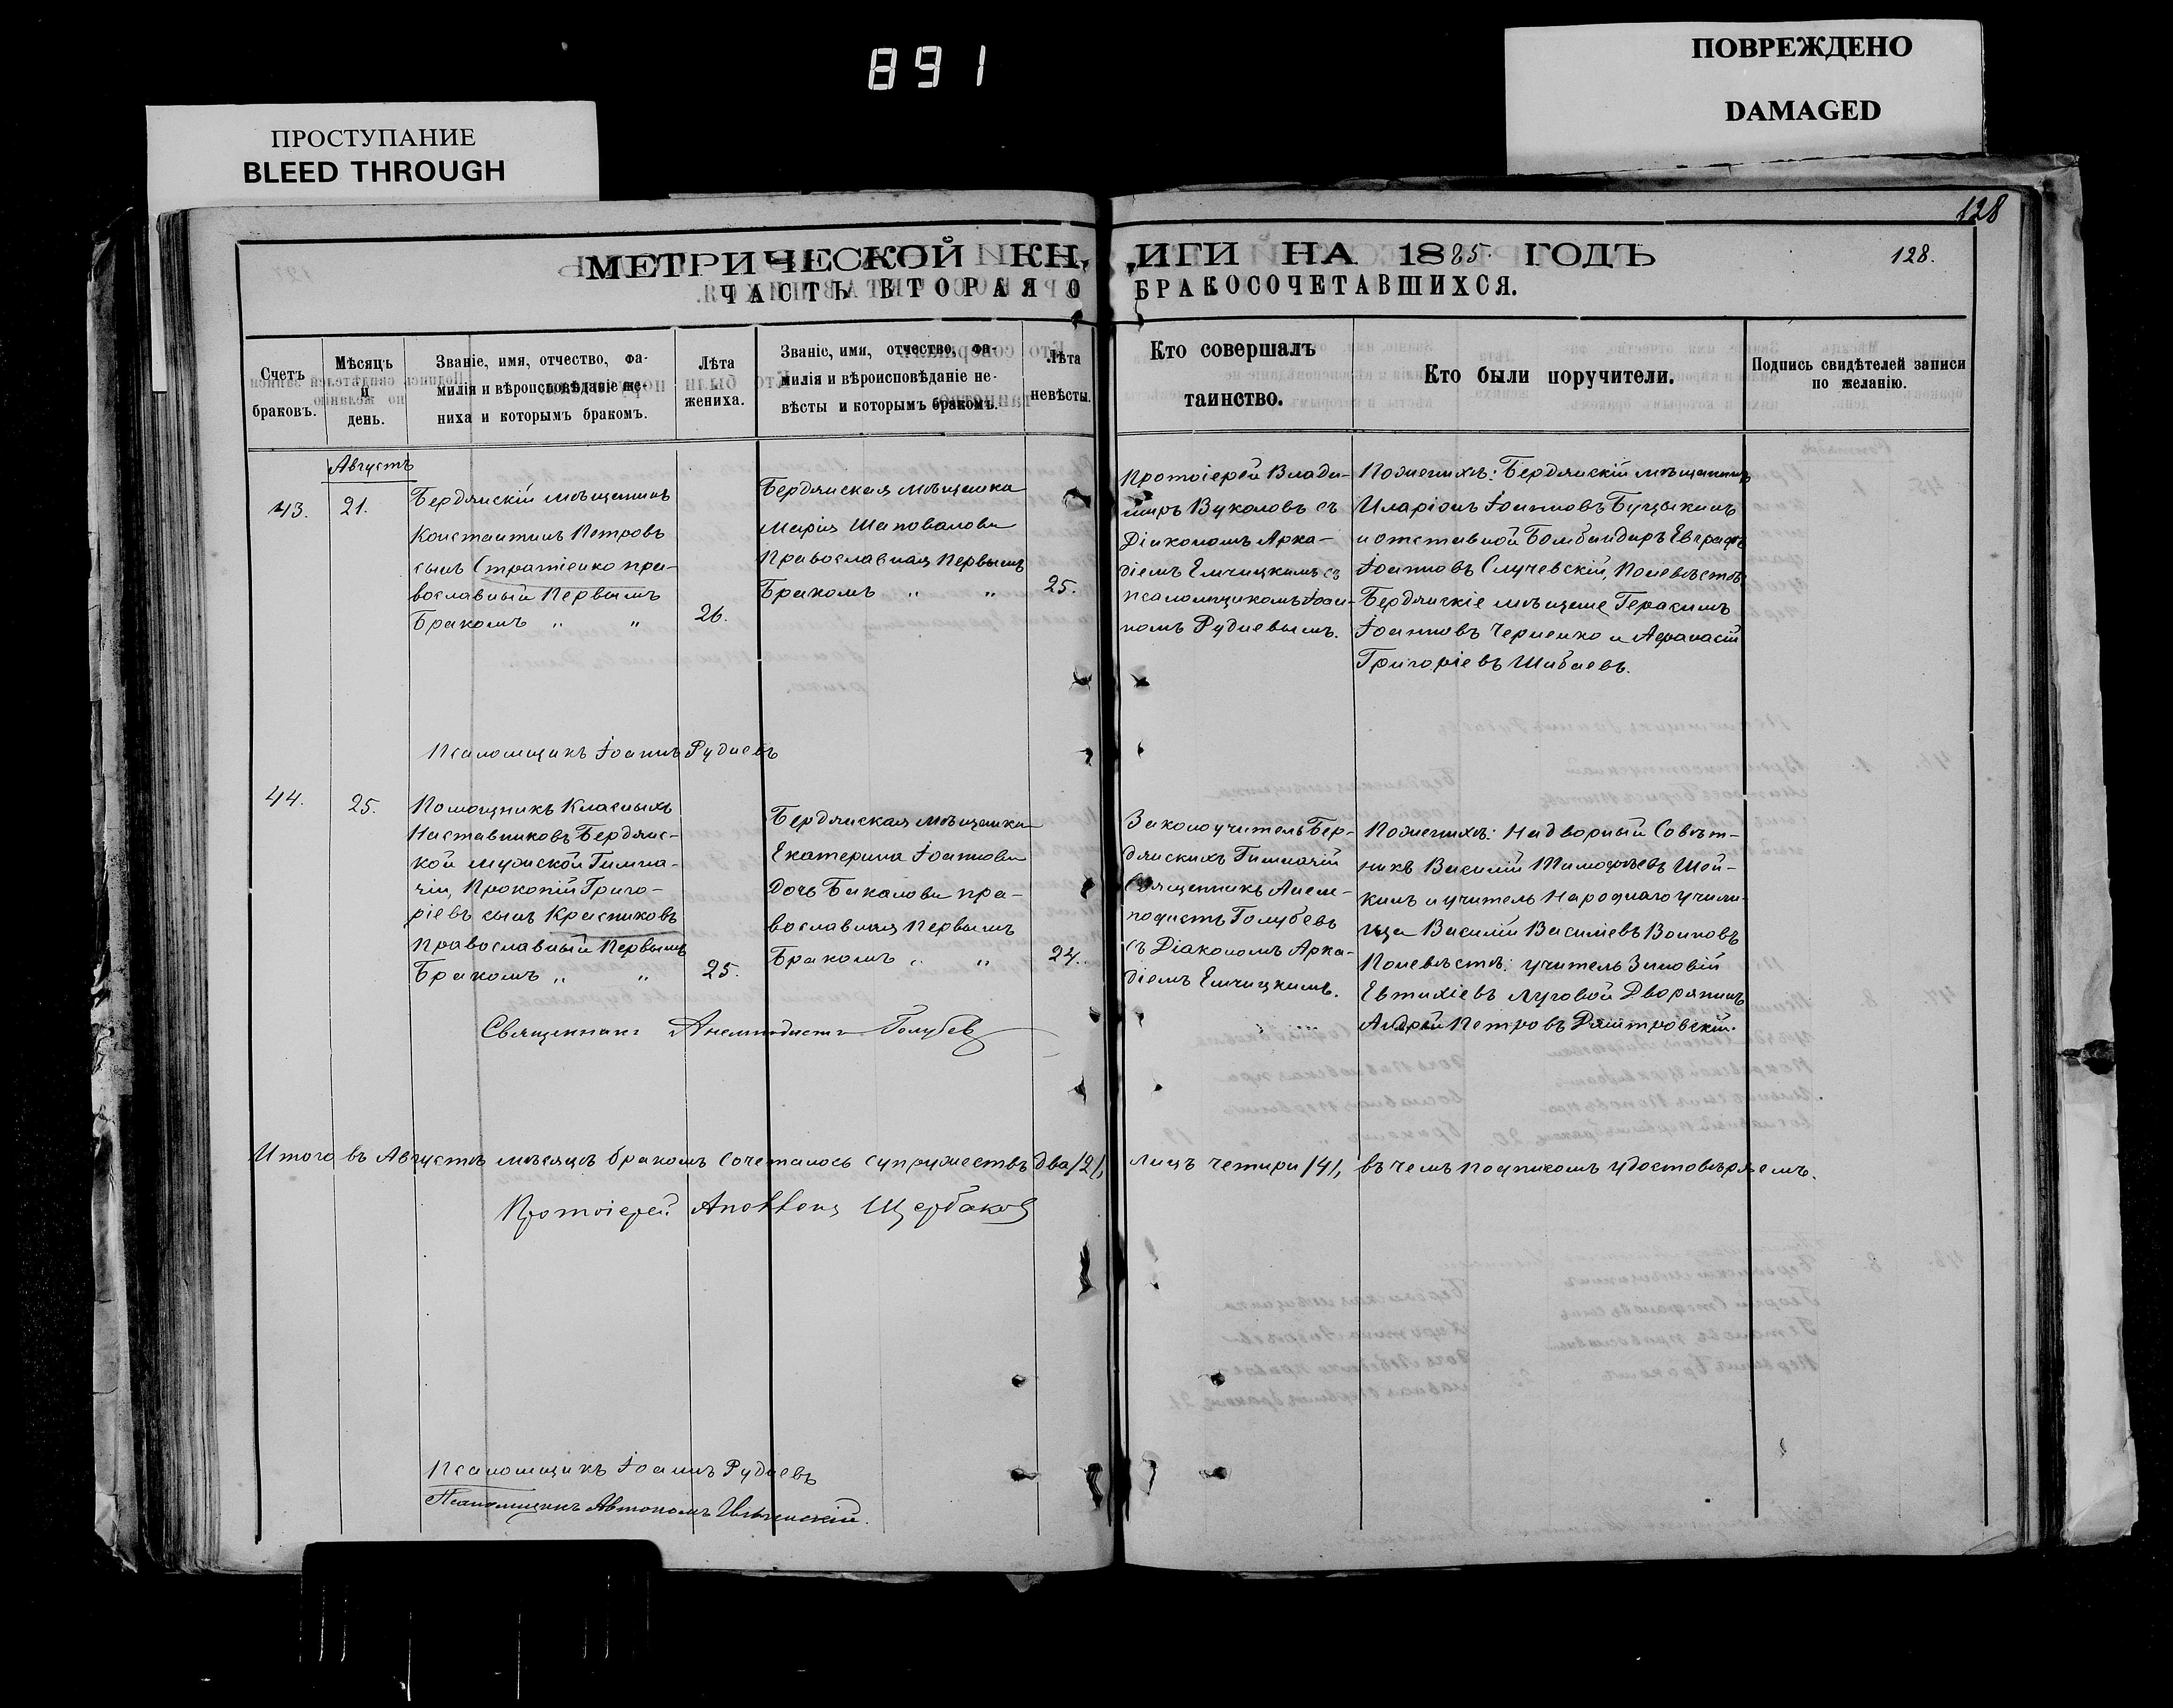 891
ПОВРЕЖДЕНО
DAMAGED
ПРОСТУПАНИЕ
BLEED THROUGH
128
МЕТРИЧЕСКОЙ КНИГИ НА 1885 ГОДЪ
128.
ЧАСТЬ ВТОРАЯ О БРАКОСОЧЕТАВШИХСЯ.
Счетъ
браковъ.
Мѣсяцъ
и
день.
Званіе, имя, отчество, фа-
милія и вѣроисповѣданіе же-
ниха и которымъ бракомъ.
Лѣта
жениха.
Званіе, имя, отчество, фа-
милія и вѣроисповѣданіе не-
вѣсты и которымъ бракомъ.
Лѣта
невѣсты.
Кто совершалъ
таинство.
Кто были поручители.
Подпись свидѣтелей записи
по желанію.
Августъ
43.
21.
Бердянскій мѣщанинъ
Константинъ Петровъ
сынъ Стратіенко пра-
вославный Первымъ
Бракомъ „ „
26.
Бердянская мѣщанка
Марія Шаповалова
Православная Первымъ
Бракомъ „ „
25.
Протоіерей Влади-
миръ Вуколовъ съ
Діакономъ Арка-
діемъ Емчицкимъ съ
псаломщикомъ Іоан-
номъ Рудневымъ.
Поженихѣ: Бердянскій мѣщанинъ
Иларіонъ Іоанновъ
и отставной Бомбандиръ Евграфъ
Іоанновъ Случевскій, Поневѣстѣ
Бердянскіе мѣщане Герасимъ
Іоанновъ Черненко и Афанасій
Григоріевъ Шибаевъ.
Псаломщикъ Іоаннъ Рудневъ
44.
25.
Помощникъ Класныхъ
Наставниковъ Бердянс-
кой мужской Гимна-
зіи, Прокопій Григо-
ріевъ сынъ Красниковъ
Православный Первымъ
Бракомъ „ „
25.
Бердянская мѣщанка
Екатерина Іоаннова
Дочь Бакалова пра-
вославная Первымъ
Бракомъ „ „
24.
Законоучитель Бер-
дянскихъ Гимназій
Священникъ Анем-
подистъ Голубевъ
съ Діакономъ Арка-
діемъ Емчицкимъ.
Поженихѣ: Надворный Совѣт-
никъ Василій Тимофѣевъ Шей-
кинъ и учитель Народнаго учили-
ща Василій Василіевъ Волковъ
Поневѣстѣ: учитель Зиновій
Евтихіевъ Луговой Дворянинъ
Андрей Петровъ Дмитровскій.
Священникъ Анемподистъ Голубев
Итого въ Августѣ мѣсяцѣ бракомъ сочеталось супружествъ два /2/, лицъ четыри /4/, въ чемъ подписомъ удостовѣряемъ.
Протоіерей Аполлонъ Щербаков
Псаломщикъ Іоаннъ Рудневъ
Псаломщикъ Автономъ Ильинскій.